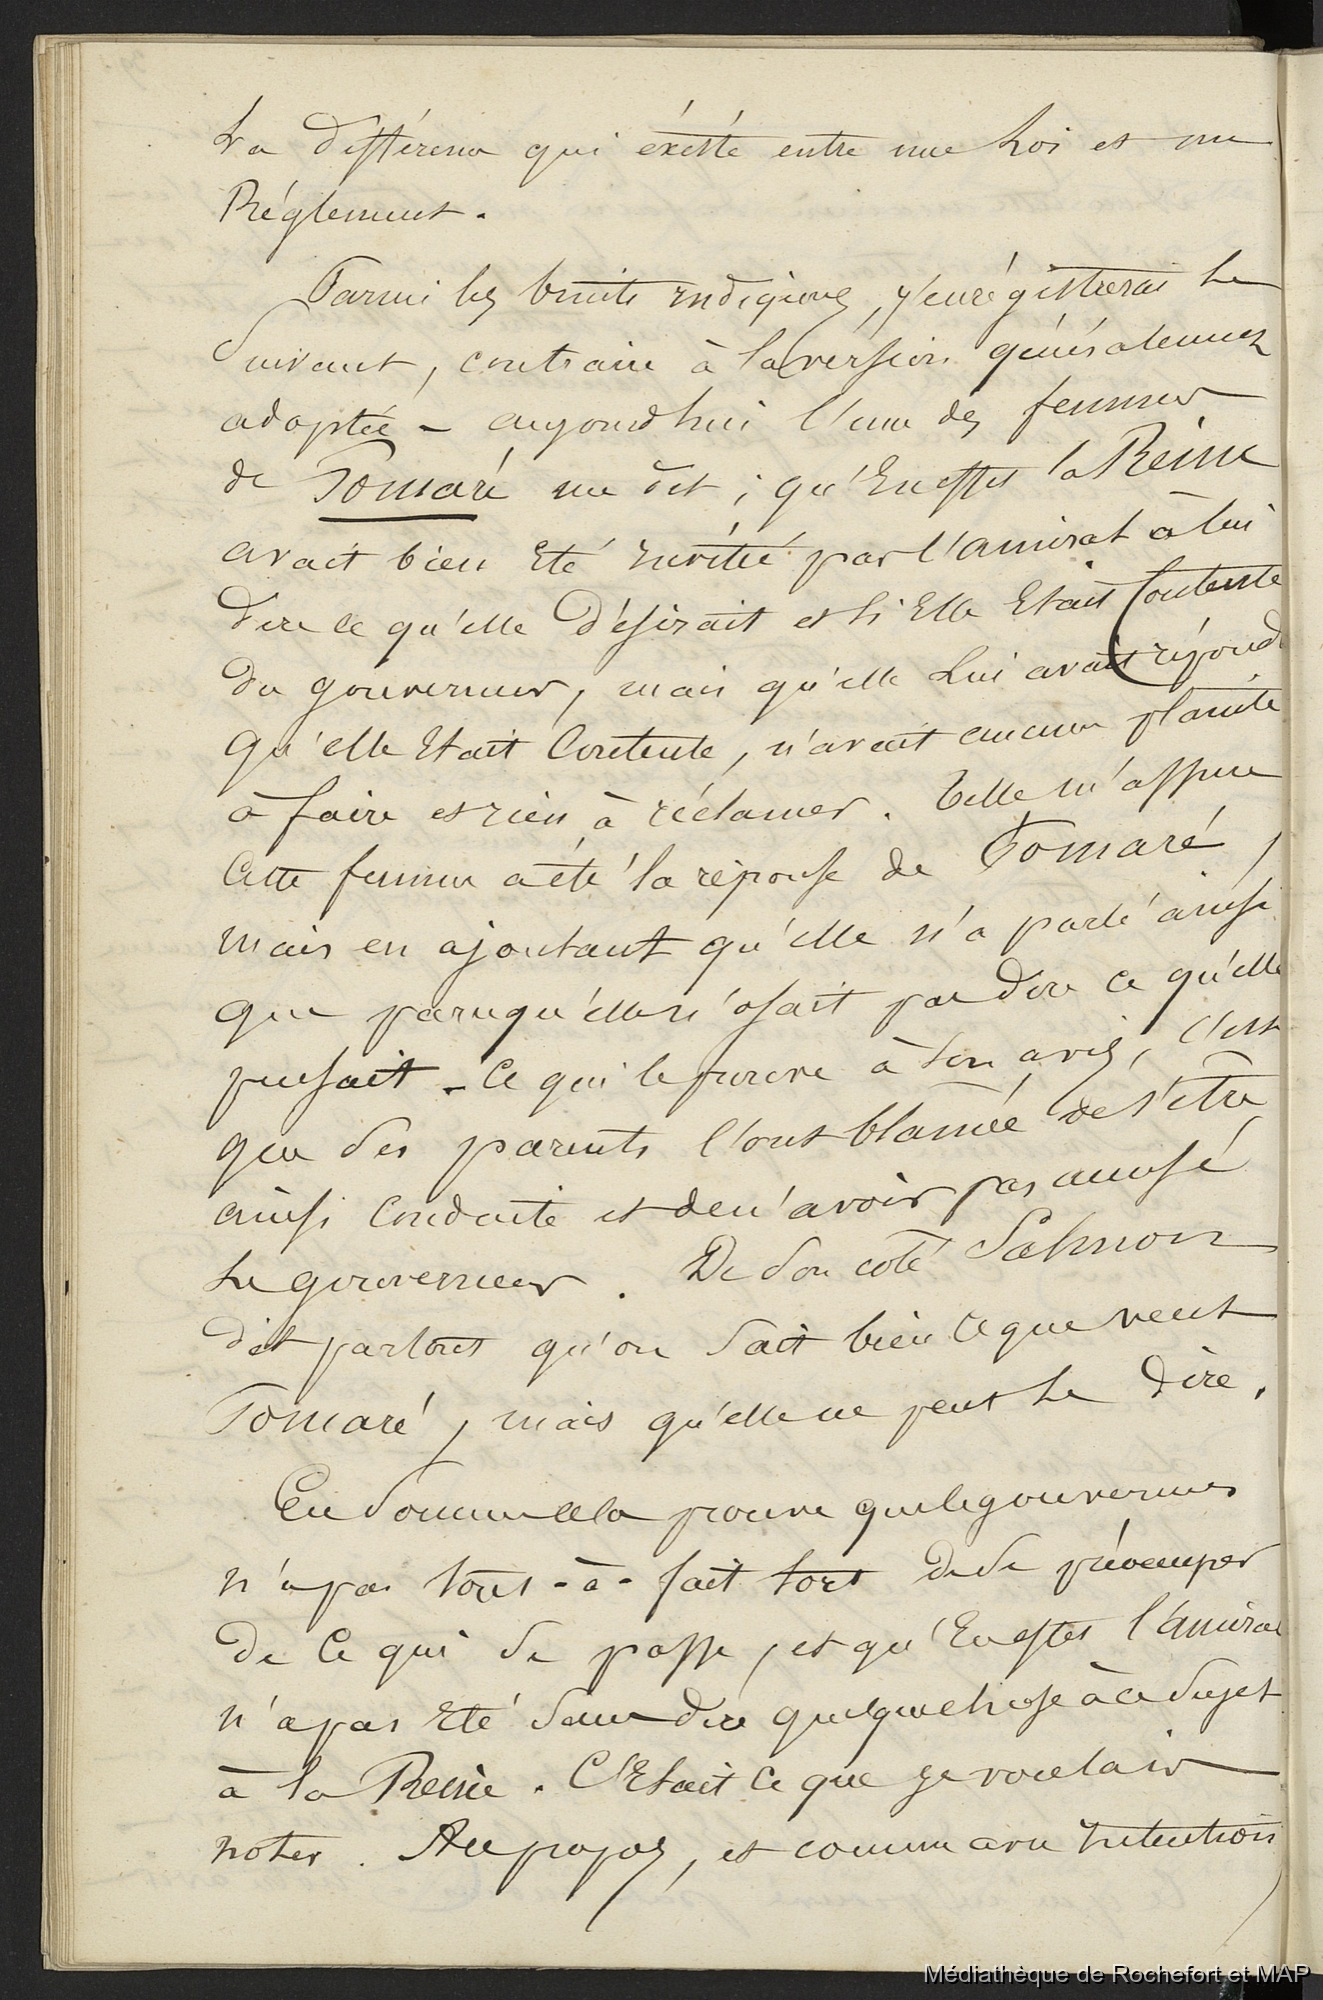 La différence qui éxiste entre une Loi et un
Réglement.
Parmi les bruits indigènes, j'enrégistrerai le
Suivant, contraire à la version généralement
adoptée - aujourd'hui l'une des femmes
de Pomaré me dit ; qu'En effet la Reine
avait bien Eté invitée par l'amiral à lui
dire ce qu'elle Désirait et si Elle Etait Contente
du gouverneur, mais qu'elle Lui avait répondu
qu'elle Etait Contente, n'avait aucune plainte
à faire et rien à réclamer. Telle m'assure
Cette femme a été la réponse de Pomaré,
mais en ajoutant qu'elle n'a parlé ainsi
que parcequ'elle n'osait pas dire ce qu'elle
pensait - Ce qui le prouve à son avis, c'est
que des parents l'ont blamée de s'être
ainsi Conduite et de n'avoir pas accusé
Le gouverneur. De son coté Salmon
dit partout qu'on Sait bien ce que veut
Pomaré, mais qu'elle ne peut le dire.
En Somme cela prouve que le gouverneur
n'a pas tout-à-fait tort de se préocuper
de Ce qui se passe, et qu'En effet l'amiral
n'a pas Eté sans dire quelque chose à ce Sujet
à la Reine. C'Etait Ce que je voulais
noter. A ce propos, et comme avu Intention
Médiathèque de Rochefort et MAP